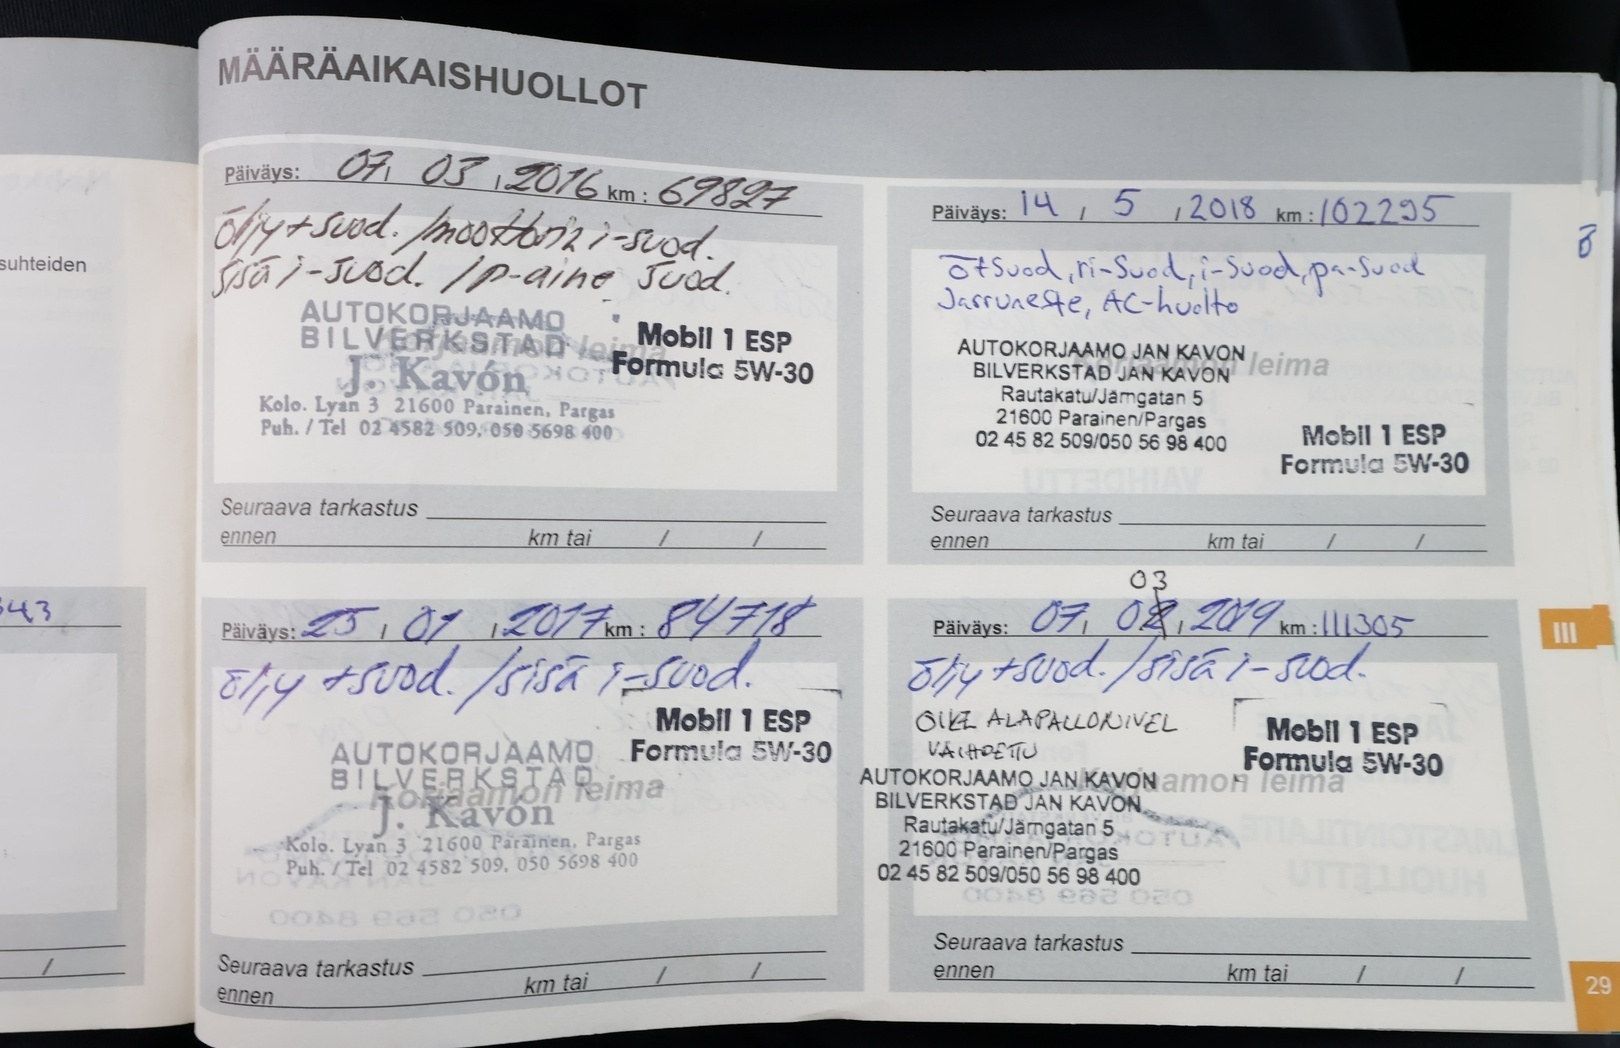 MÄÄRÄAIKAISHUOLLOT
suhteiden
343
/
Päiväys: 07, 03, 2016 km: 69827
öljy+suod. /moottorin i-suod.
sisä i-suod. /p-aine suod.
AUTOKORJAAMO
BILVERKSTAD
Korjaamon leima
J. Kavón
Kolo. Lyan 3 21600 Parainen, Pargas
Puh. / Tel 02 4582 509, 050 5698 400
Mobil 1 ESP
Formula 5W-30
Seuraava tarkastus
ennen km tai / /
Päiväys: 14 / 5 / 2018 km: 102295
ö+suod, ri-suod, i-suod, pa-suod
Jarruneste, AC-huolto
AUTOKORJAAMO JAN KAVON
Korjaamon leima
BILVERKSTAD JAN KAVON
Rautakatu/Järngatan 5
21600 Parainen/Pargas
02 45 82 509/050 56 98 400
Mobil 1 ESP
Formula 5W-30
Seuraava tarkastus
ennen km tai / /
Päiväys: 25 / 01 / 2017 km: 84718
öljy +suod. /sisä i-suod.
Mobil 1 ESP
Formula 5W-30
AUTOKORJAAMO
BILVERKSTAD
Korjaamon leima
J. Kavón
Kolo. Lyan 3 21600 Parainen, Pargas
Puh. / Tel 02 4582 509, 050 5698 400
Seuraava tarkastus
ennen km tai / /
03
Päiväys: 07, 02, 2019 km: 111305
öljy +suod. /sisä i-suod.
OIKE ALAPALLONIVEL
VAIHDETTU
Mobil 1 ESP
Formula 5W-30
AUTOKORJAAMO JAN KAVON
Korjaamon leima
BILVERKSTAD JAN KAVON
Rautakatu/Järngatan 5
21600 Parainen/Pargas
02 45 82 509/050 56 98 400
Seuraava tarkastus
ennen km tai / /
ö
III
29